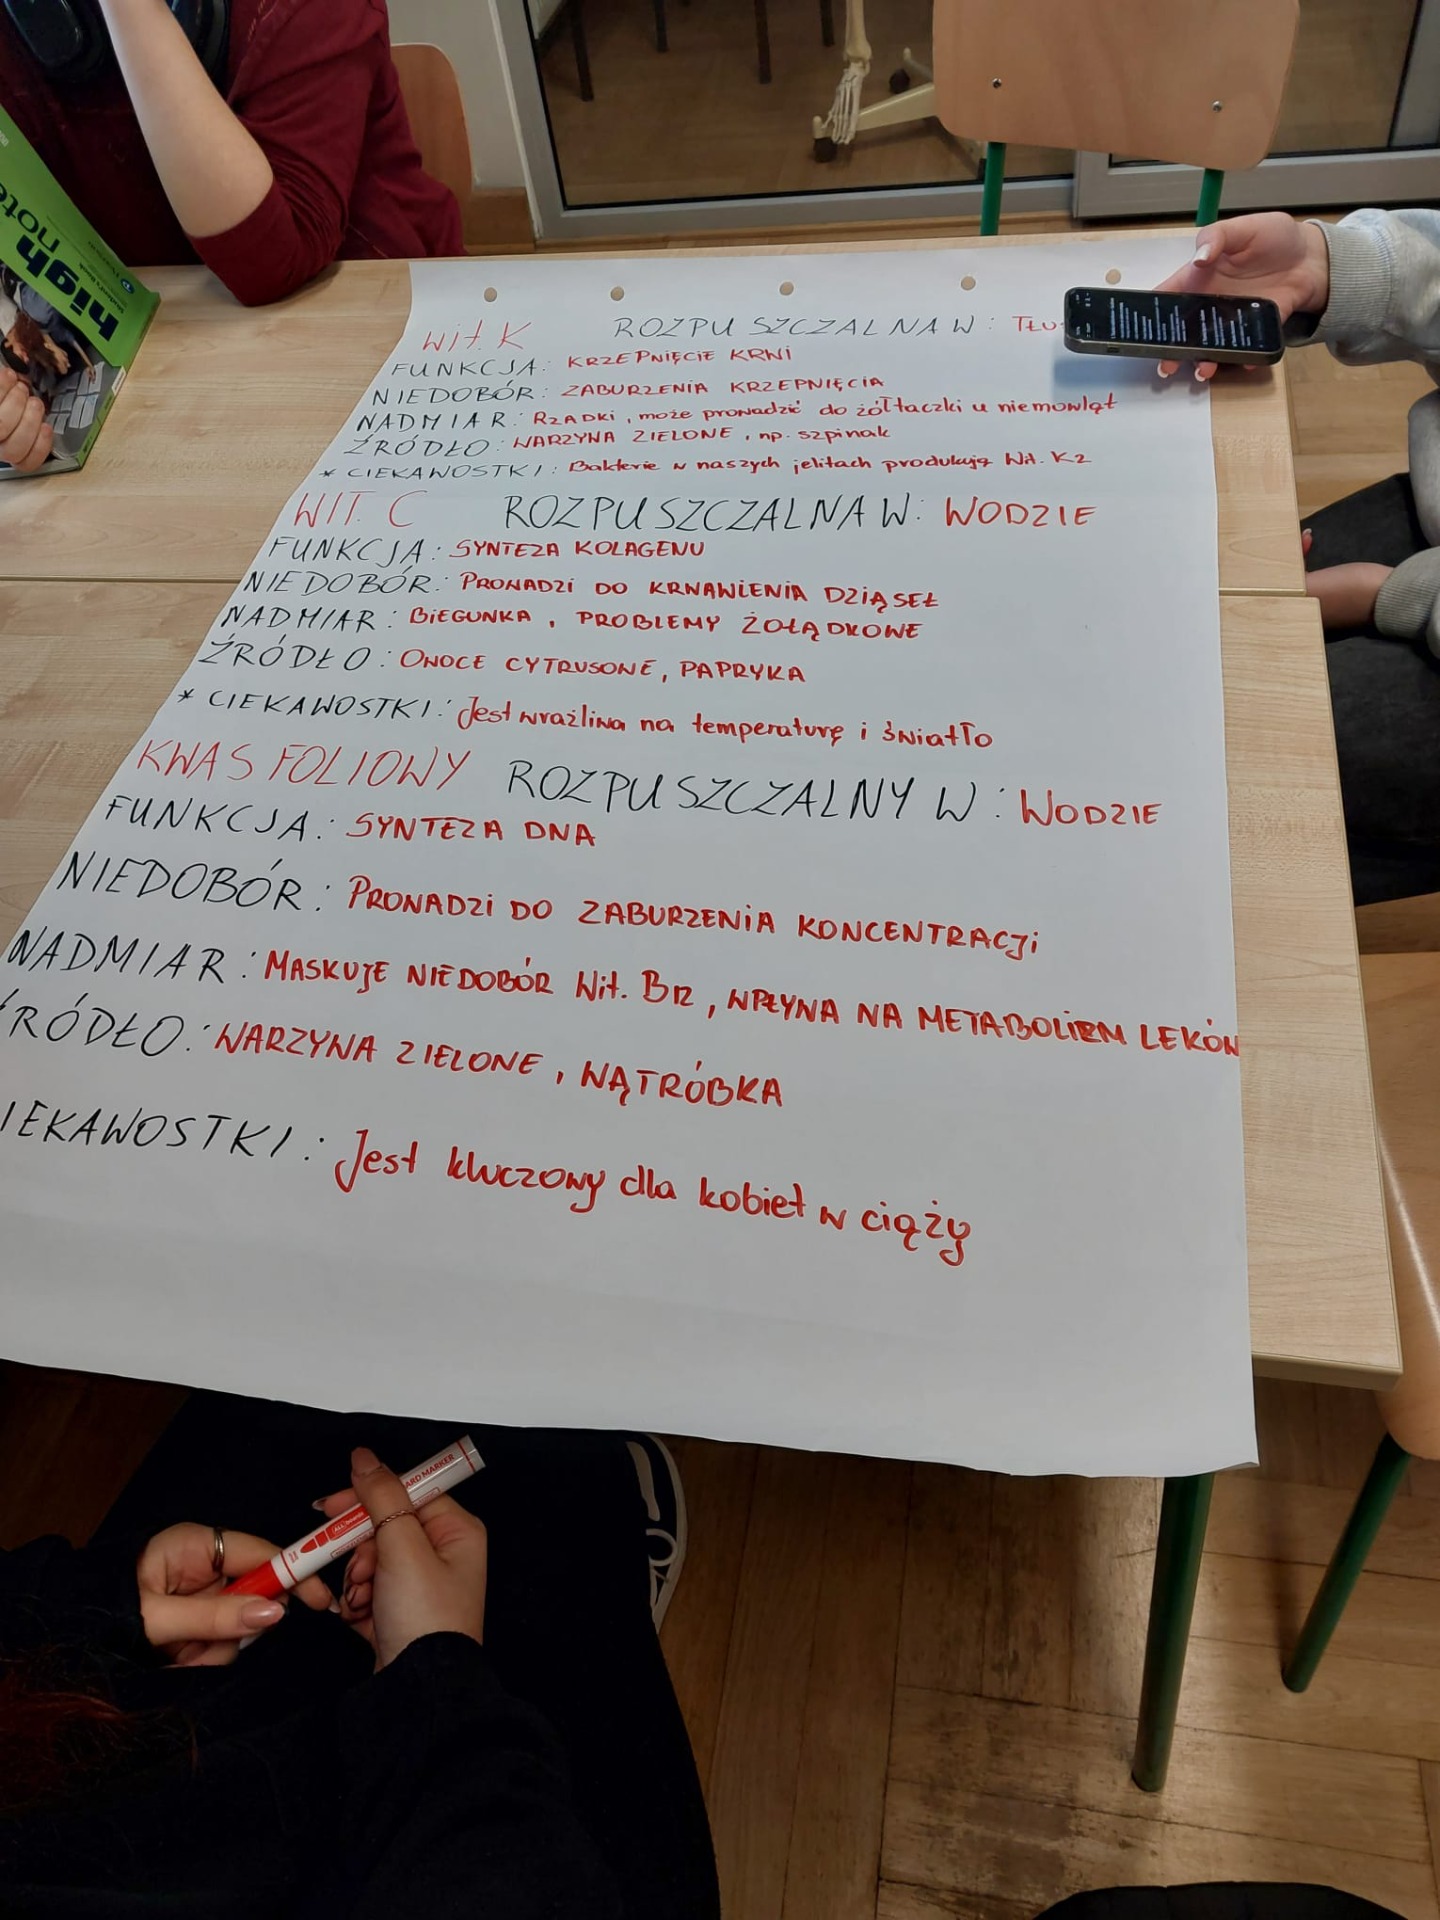 Wit. K ROZPUSZCZALNA W: TŁU
FUNKCJA: KRZEPNIĘCIE KRWI
NIEDOBÓR: ZABURZENIA KRZEPNIĘCIA
NADMIAR: RZADKI, może prowadzić do żółtaczki u niemowląt
ŹRÓDŁO: WARZYWA ZIELONE, np. szpinak
* CIEKAWOSTKI: Bakterie w naszych jelitach produkują Wit. K2
WIT. C ROZPUSZCZALNA W: WODZIE
FUNKCJA: SYNTEZA KOLAGENU
NIEDOBÓR: PROWADZI DO KRWAWIENIA DZIĄSEŁ
NADMIAR: BIEGUNKA, PROBLEMY ŻOŁĄDKOWE
ŹRÓDŁO: OWOCE CYTRUSOWE, PAPRYKA
* CIEKAWOSTKI: Jest wrażliwa na temperaturę i światło
KWAS FOLIOWY ROZPUSZCZALNY W: WODZIE
FUNKCJA: SYNTEZA DNA
NIEDOBÓR: PROWADZI DO ZABURZENIA KONCENTRACJI
NADMIAR: MASKUJE NIEDOBÓR Wit. B12, WPŁYWA NA METABOLIZM LEKÓW
ŹRÓDŁO: WARZYWA ZIELONE, WĄTRÓBKA
IEKAWOSTKI: Jest kluczowy dla kobiet w ciąży
high note
Student's Book
ARD MARKER